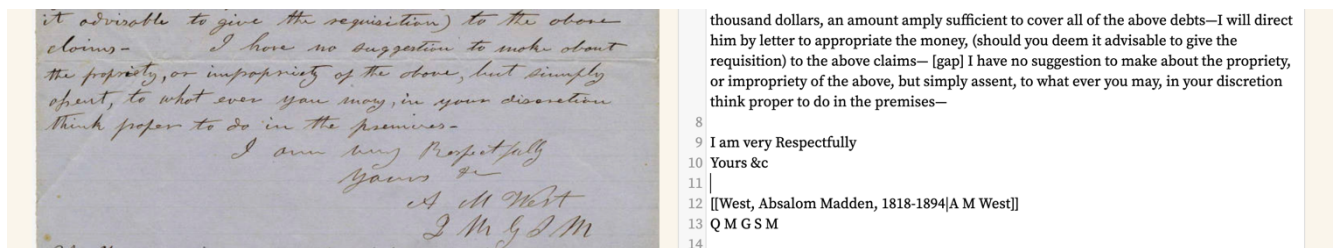 it advisable to give the requisition) to the above
claims- I have no suggestion to make about
the propriety, or impropriety of the above, but simply
assent, to what ever you may, in your discretion
think proper to do in the premises-
I am very Respectfully
Yours &c
A M West
Q M G S M
thousand dollars, an amount amply sufficient to cover all of the above debts—I will direct
him by letter to appropriate the money, (should you deem it advisable to give the
requisition) to the above claims— [gap] I have no suggestion to make about the propriety,
or impropriety of the above, but simply assent, to what ever you may, in your discretion
think proper to do in the premises—
8
9 I am very Respectfully
10 Yours &c
11
12 [[West, Absalom Madden, 1818-1894|A M West]]
13 Q M G S M
14